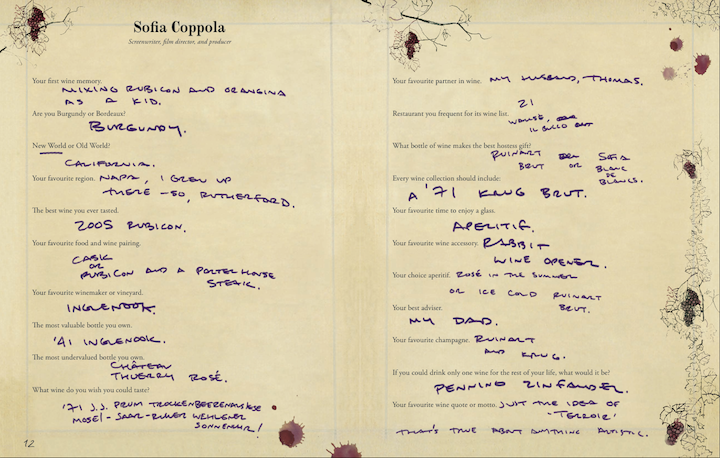 Sofia Coppola
Screenwriter, film director, and producer
Your first wine memory.
MIXING RUBICON AND ORANGINA
AS A KID.
Are you Burgundy or Bordeaux?
BURGUNDY.
New World or Old World?
CALIFORNIA.
Your favourite region. NAPA, I GREW UP
THERE - SO, RUTHERFORD.
The best wine you ever tasted.
2005 RUBICON.
Your favourite food and wine pairing.
CASK
OR
RUBICON AND A PORTERHOUSE
STEAK.
Your favourite winemaker or vineyard.
INGLENOOK.
The most valuable bottle you own.
'41 INGLENOOK.
The most undervalued bottle you own.
CHÂTEAU
THUERRY ROSÉ.
What wine do you wish you could taste?
'71 J.J. PRUM TROCKENBEERENAUSLESE
MOSEL-SAAR-RUWER WEHLENER
SONNENUHR!
12
Your favourite partner in wine. MY HUSBAND, THOMAS.
Restaurant you frequent for its wine list.
21
IL BUCO OUT
What bottle of wine makes the best hostess gift?
RUINART SOFIA
BRUT OR BLANC
DE
BLANCS.
Every wine collection should include:
A '71 KRUG BRUT.
Your favourite time to enjoy a glass.
APERITIF.
Your favourite wine accessory. RABBIT
WINE OPENER.
Your choice aperitif. ROSÉ IN THE SUMMER
OR ICE COLD RUINART
BRUT.
Your best adviser.
MY DAD.
Your favourite champagne. RUINART
AND KRUG.
If you could drink only one wine for the rest of your life, what would it be?
PENNINO ZINFANDEL.
Your favourite wine quote or motto. JUST THE IDEA OF
"TERROIR"
THAT'S TRUE ABOUT ANYTHING ARTISTIC.